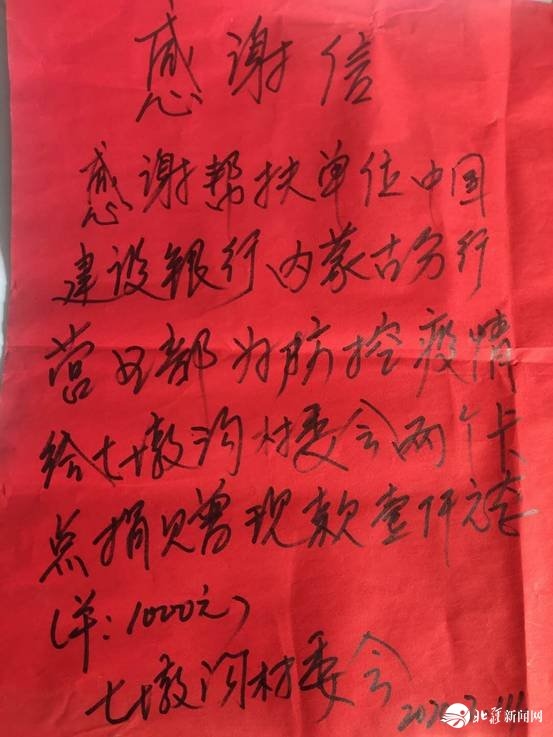 感谢信
感谢帮扶单位中国
建设银行内蒙古分行
营业部为防控疫情
给七墩沟村委会两个卡
点捐赠现款壹仟元整
(洋:1000元)
七墩沟村委会
北疆新闻网